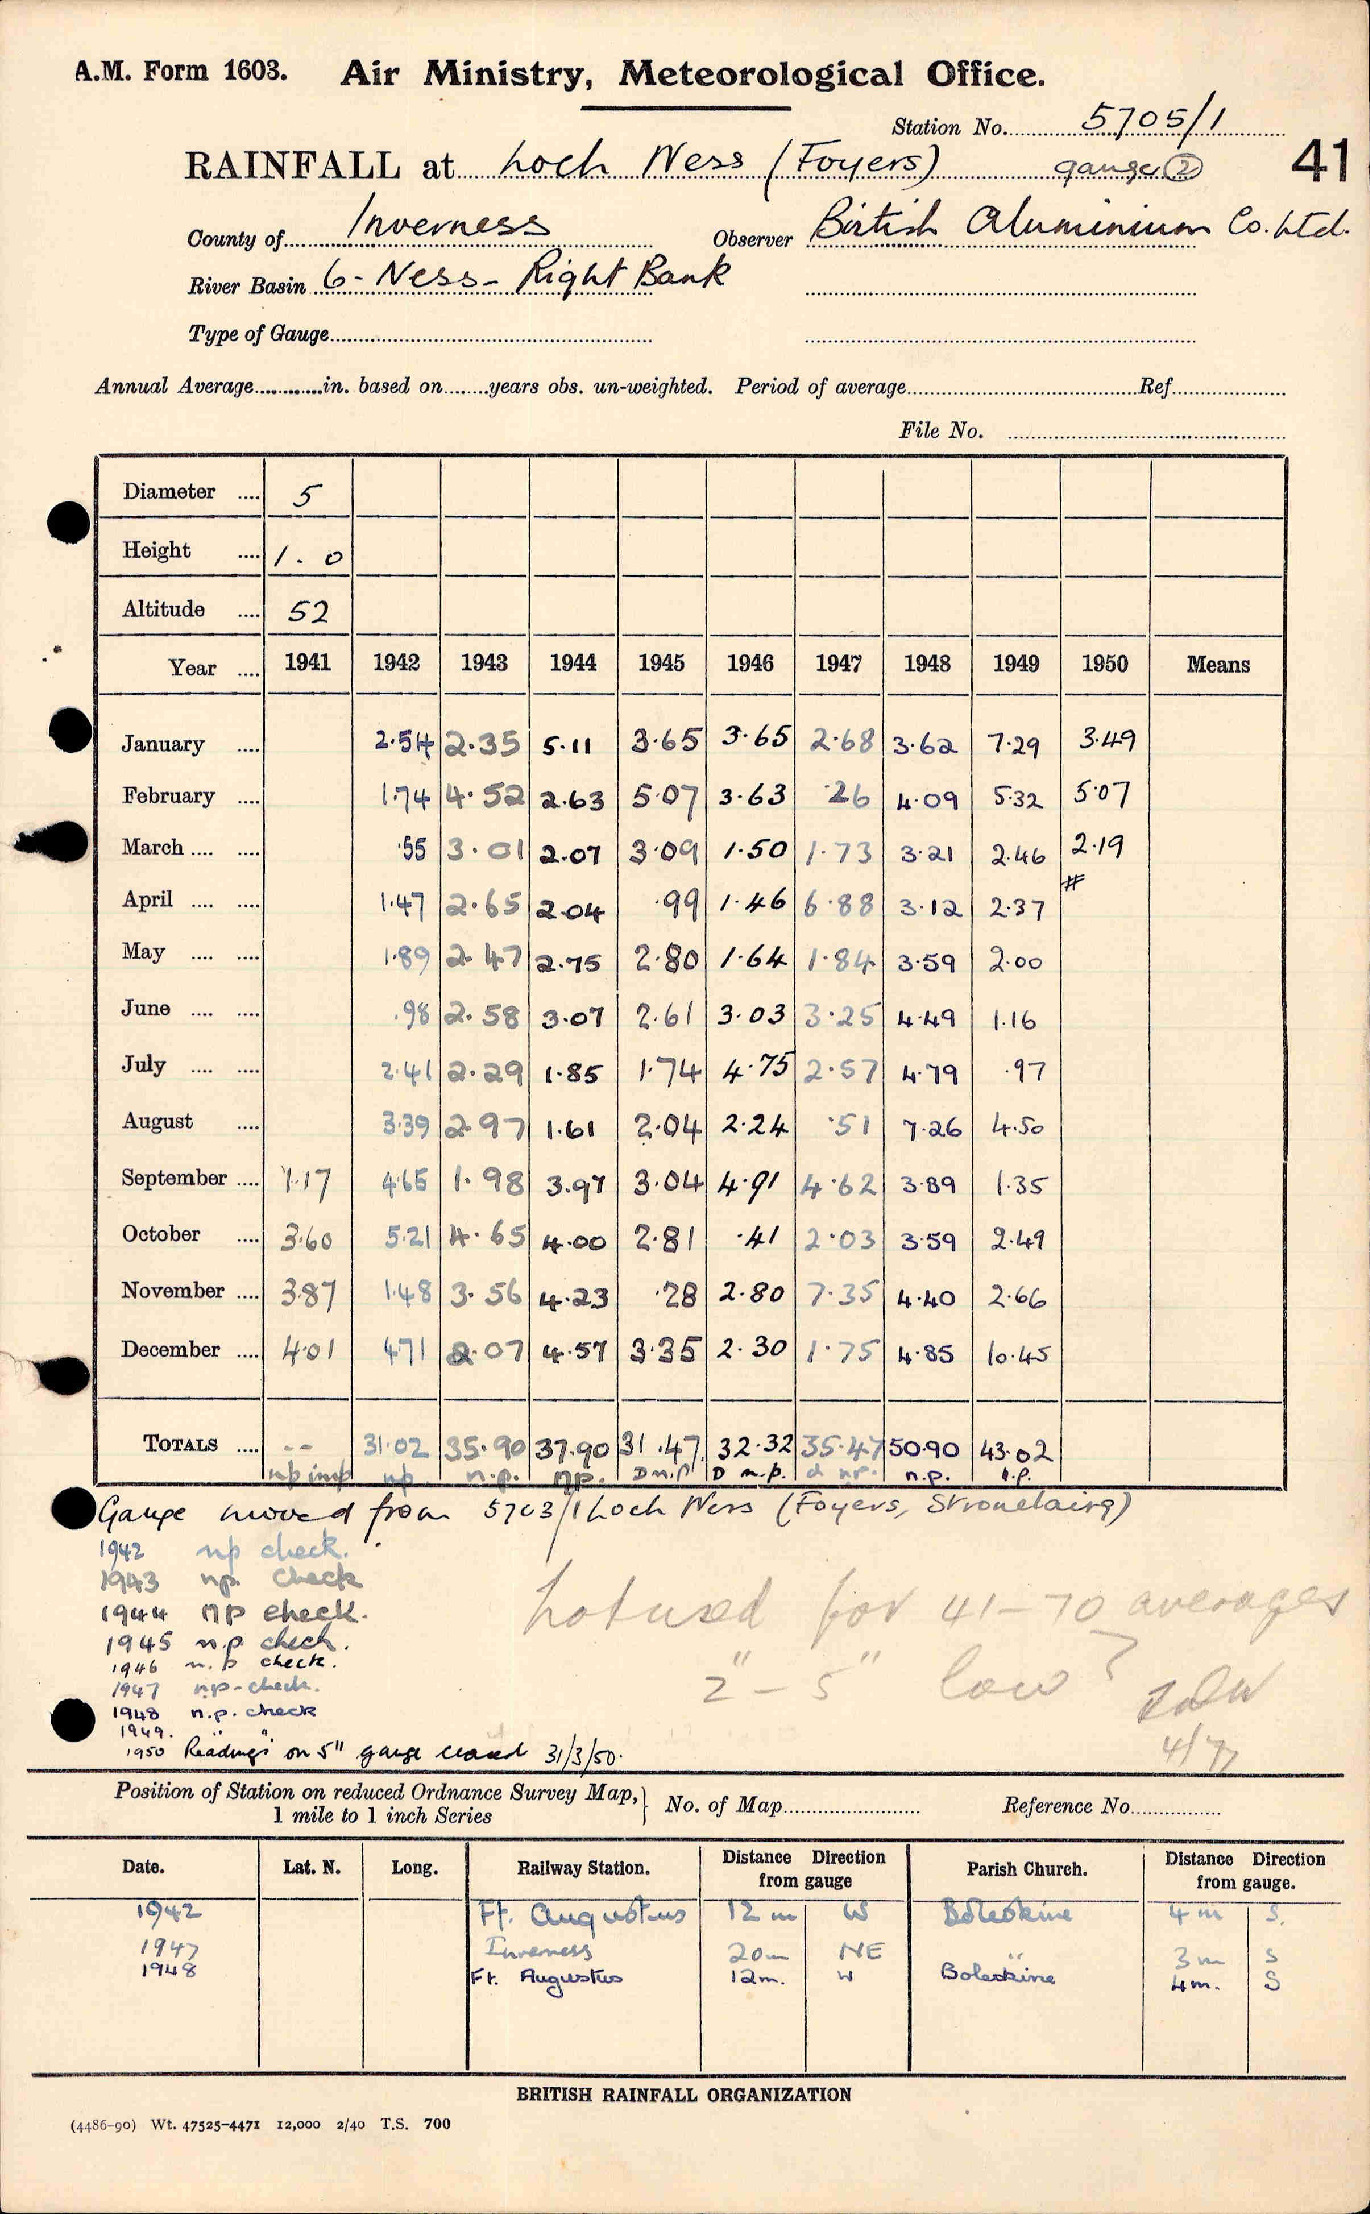 A.M. Form 1603. Air Ministry, Meteorological Office.
Station No. 5705/1
RAINFALL at Loch Ness (Foyers) gauge ② 41
County of Inverness Observer British Aluminium Co. Ltd.
River Basin 6 - Ness - Right Bank
Type of Gauge
Annual Average in. based on years obs. un-weighted. Period of average Ref.
File No.
Diameter 5
Height 1.0
Altitude 52
Year 1941 1942 1943 1944 1945 1946 1947 1948 1949 1950 Means
January 2.54 2.35 5.11 3.65 3.65 2.68 3.62 7.29 3.49
February 1.74 4.52 2.63 5.07 3.63 .26 4.09 5.32 5.07
March .55 3.01 2.07 3.09 1.50 1.73 3.21 2.46 2.19
April 1.47 2.65 2.04 .99 1.46 6.88 3.12 2.37 #
May 1.89 2.47 2.75 2.80 1.64 1.84 3.59 2.00
June .98 2.58 3.07 2.61 3.03 3.25 4.49 1.16
July 2.41 2.29 1.85 1.74 4.75 2.57 4.79 .97
August 3.39 2.97 1.61 2.04 2.24 .51 7.26 4.50
September 1.17 4.65 1.98 3.97 3.04 4.91 4.62 3.89 1.35
October 3.60 5.21 4.65 4.00 2.81 .41 2.03 3.59 2.49
November 3.87 1.48 3.56 4.23 .28 2.80 7.35 4.40 2.66
December 4.01 4.71 2.07 4.57 3.35 2.30 1.75 4.85 10.45
TOTALS -- 31.02 35.90 37.90 31.47 32.32 35.47 50.90 43.02
np imp np n.p. np. D n.p D n.p. d np. n.p. n.p.
Gauge moved from 5703/1 Loch Ness (Foyers, Stronelairg)
1942 np check.
1943 np. Check
1944 np check.
1945 n.p check.
1946 n.p check.
1947 np-check.
1948 n.p. check
1949. " "
1950 Readings on 5" gauge ceased 31/3/50.
Not used for 41-70 averages
2" - 5" low?
4/77
Position of Station on reduced Ordnance Survey Map, 1 mile to 1 inch Series No. of Map Reference No.
Date. Lat. N. Long. Railway Station. Distance Direction from gauge Parish Church. Distance Direction from gauge.
1942 Ft. Augustus 12 m W Boleskine 4 m S.
1947 Inverness 20m NE " 3 m S
1948 Ft. Augustus 12m. W Boleskine 4m. S
BRITISH RAINFALL ORGANIZATION
(4486-90) Wt. 47525-4471 12,000 2/40 T.S. 700